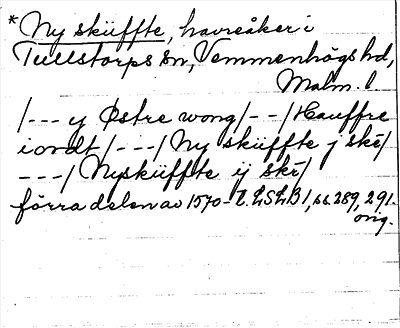 * Ny sküffte, havreåker i
Tullstorps sn, Vemmenhögs hd,
Malm. l
/--- y Østre wong/--/Hauffre
iordt/---/Ny sküffte j ske/
---/Nysküffte ij ske/
förra delen av 1570-t. LSLB 1, ss. 289, 291.
orig.